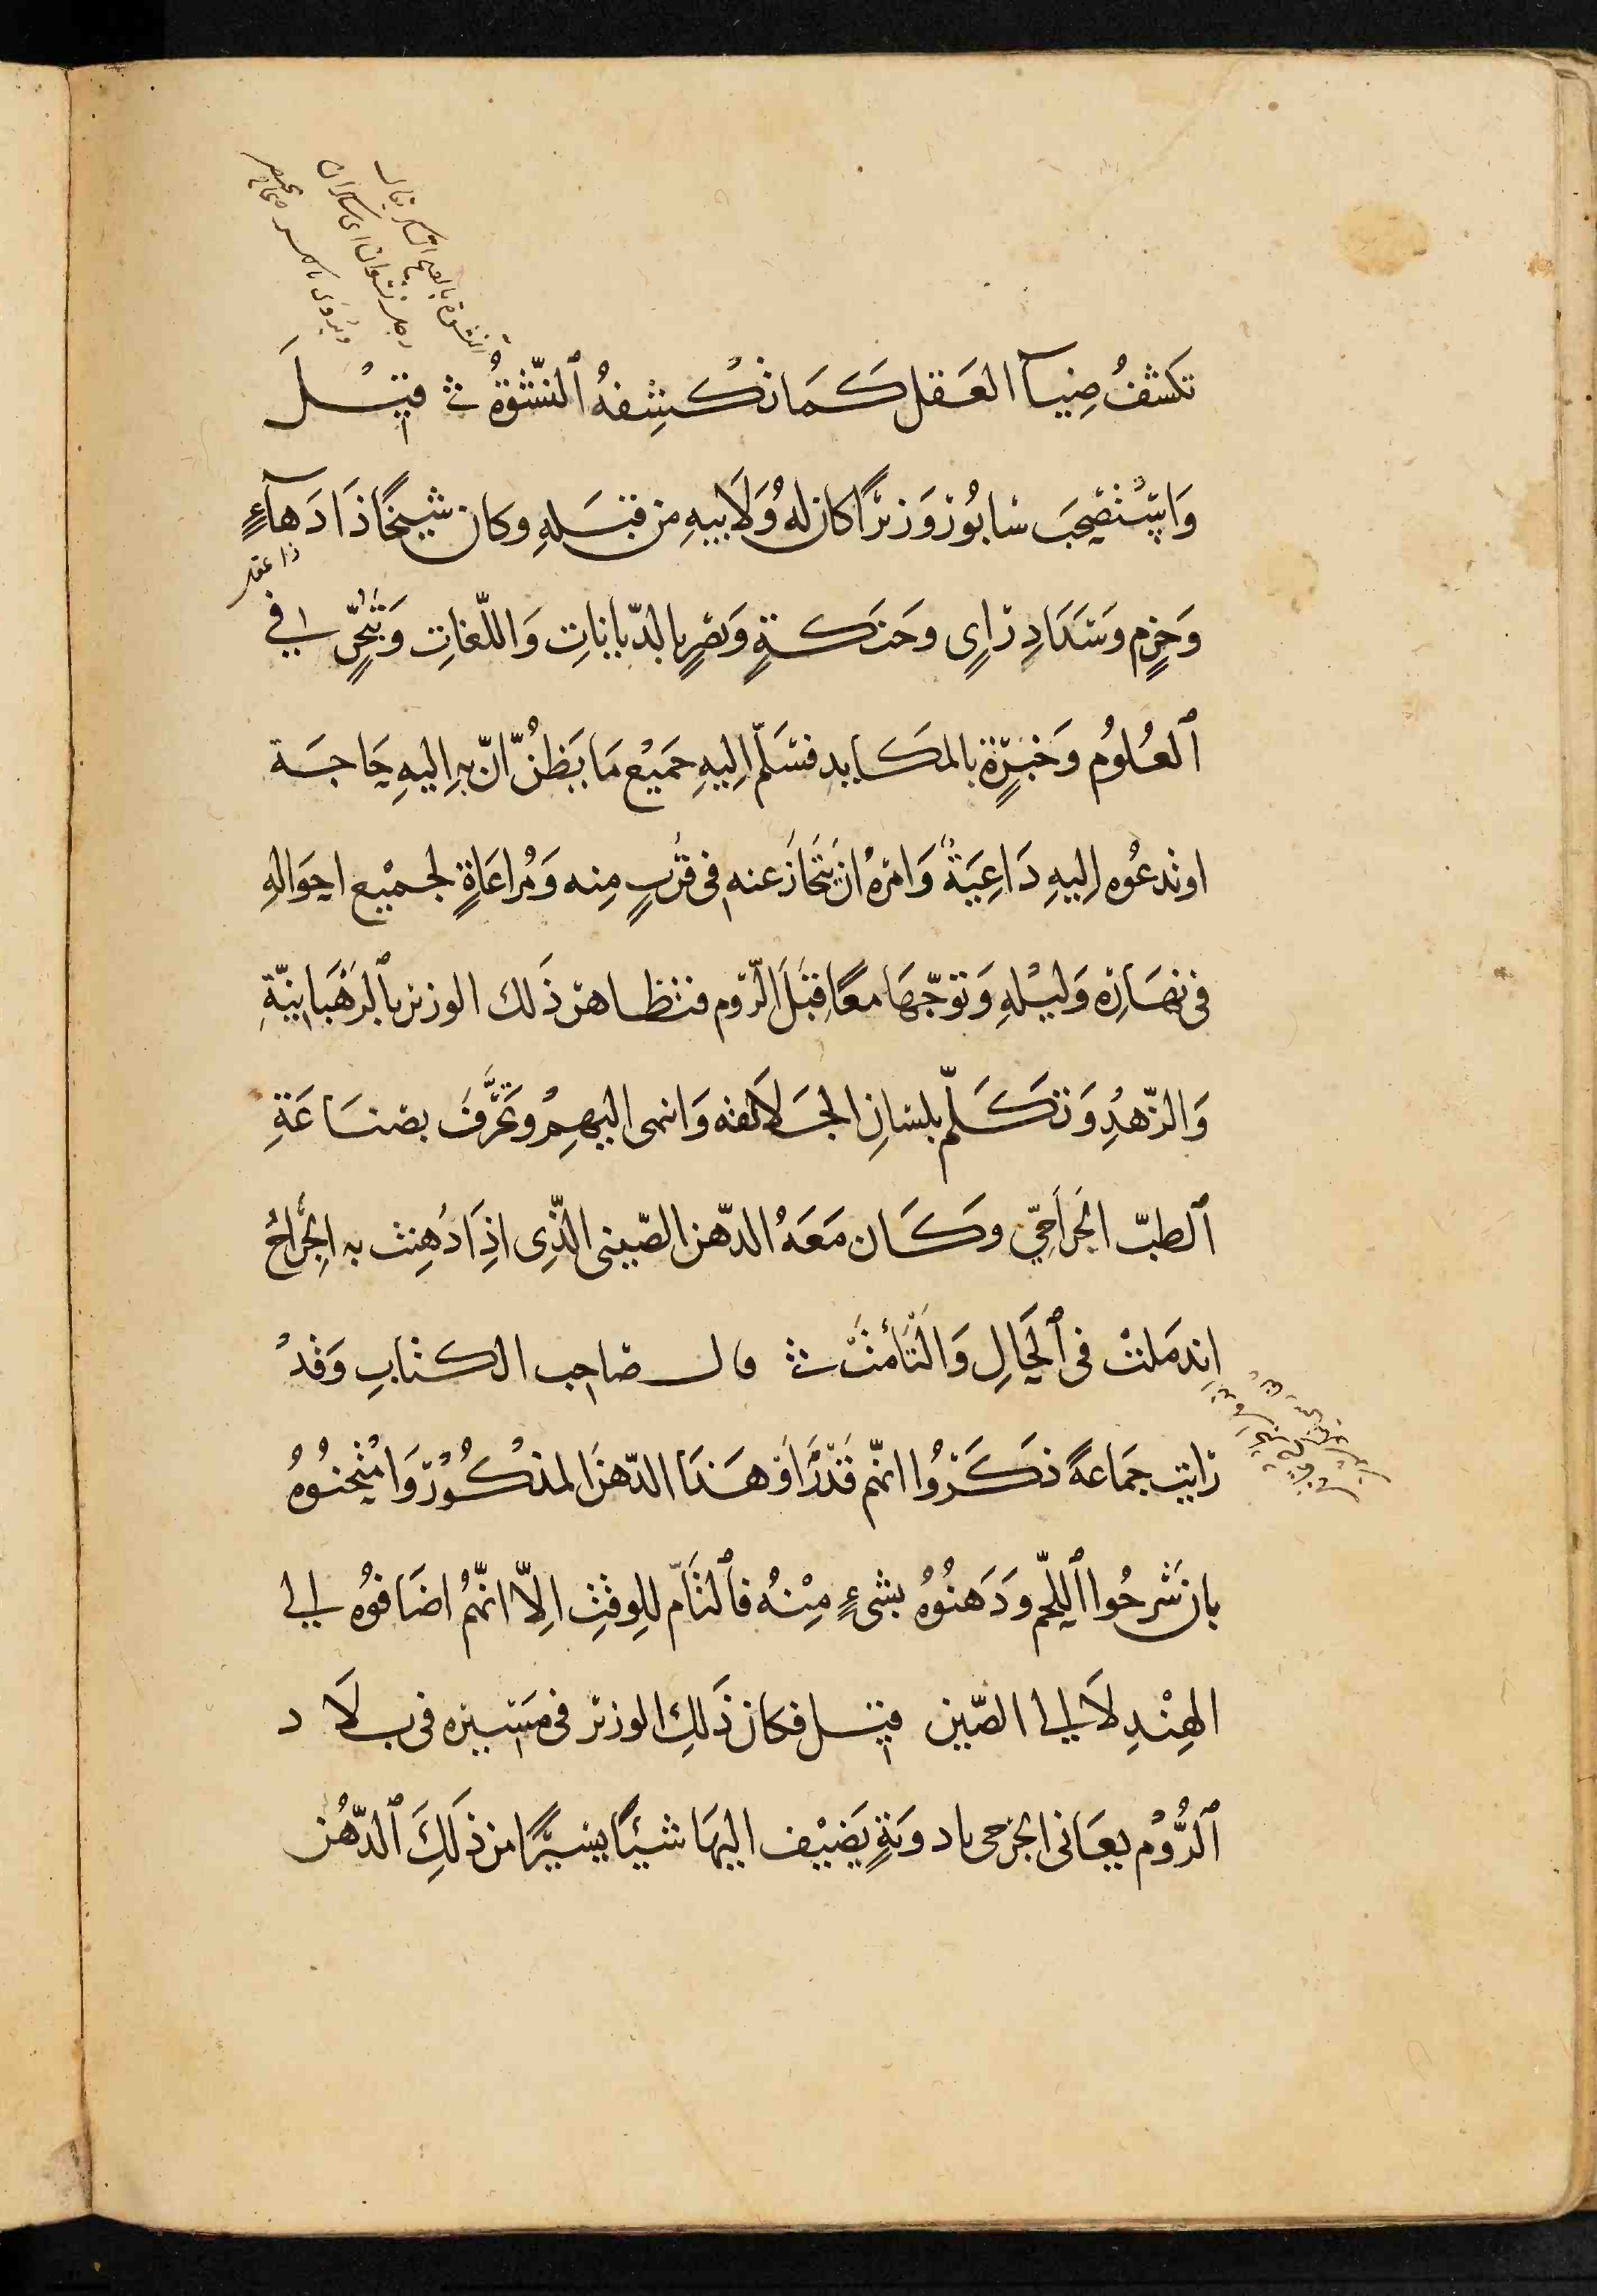 النشوة بالفتح السكر يقال
رجل نشوان اى سكران
ويروى بالكسر
تَكسْفُ ضِيآ العَقل كَمَا تكْسِفهُ ٱلنَّشْوَةُ ۞ قِيْلَ
وَاسْتَصْحَبَ سَابُورْ وَزيرًا كان لهُ وَلَابيهِ من قبَلهِ وكان شيخًا ذَا دَهآءٍ
ذا عقل
وَحَزمٍ وسَدَادِ رَاىٍ وحَنكةٍ وَبصَرٍ بالدّيانَاتِ وَاللّغاتِ وَتَبَحُّرٍ في
ٱلعُلوُم وَخبرَةٍ بالمكَايد فسَلّم اِليهِ جَميْع مَا يَظنُّ انّ بهِ اليهِ حَاجَة
او تدعُوه اِليهِ دَاعِيَةٌ وَامرهُ انْ يَنحَازَ عنه فى قُربٍ مِنه وَمُراعَاةٍ لجميْع احوَالهِ
فى نهَارِه وَليْلهِ وَتوَجّهَا معًا قِبَلَ الرّوم فتظاهر ذَلك الوزير بٱلرَّهْبَانِيّةِ
وَالزّهدِ وَتكلّم بلسَانِ الجَلَالقه وَانتمى اليهِمْ وَعَرَّفَ بصنَاعَةِ
ٱلطبّ الجَراحِيّ وكَان مَعَهُ الدّهن الصّينى الّذِى اذِا دُهِنت به الجِراحُ
اِندمَلتْ فى ٱلحَالِ وَالْتَأمَتْ ۞ قال صَاحِب الكتابِ وَقدْ
رَايت جمَاعةً ذكَرُوا انّهم قَدْ رَأوْ هَذا الدّهن المذكُورْ وَامْتَحنُوهُ
بان شَرحُوا ٱللّحم وَدَهنُوُهُ بشىءٍ مِنْهُ فٱلتَأَم للِوقتِ الِاّ انّهمُ اضَافوُه الى
الهِنْدِ لَا الى الصّين قيل فكان ذَلكِ الوزير فى مَسيره فى بلَا د
ٱلرُّوْم يعَانى الجَرحى بادويَةٍ يَضيْف اليهَا شيئًا يسيرًا من ذَلكَ ٱلدّهُن